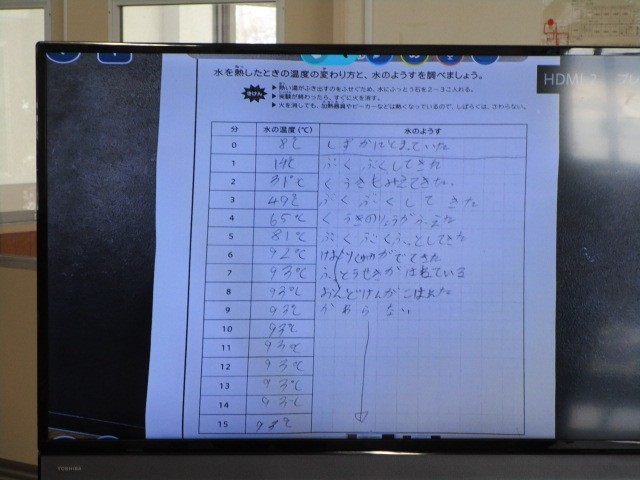 HDMI 2
水を熱したときの温度の変わり方と、水のようすを調べましょう。
きけん
▶熱い湯がふき出すのをふせぐため、水にふっとう石を2～3こ入れる。
▶実験が終わったら、すぐに火を消す。
▶火を消しても、加熱器具やビーカーなどは熱くなっているので、しばらくは、さわらない。
分 水の温度(℃) 水のようす
0 8℃ しずかにとまっていた
1 19℃ ぶくぶくしてきた
2 31℃ くうきもみえてきた。
3 49℃ ぶくぶくしてきた
4 65℃ くうきのりょうがふえた
5 81℃ としてきた
6 92℃ けむりがでてきた
7 93℃ ふっとうせきが
8 93℃ おんどけいがこわれた
9 93℃ かわらない
10 93℃
11 93℃
12 93℃
13 93℃
14 93℃
15
TOSHIBA